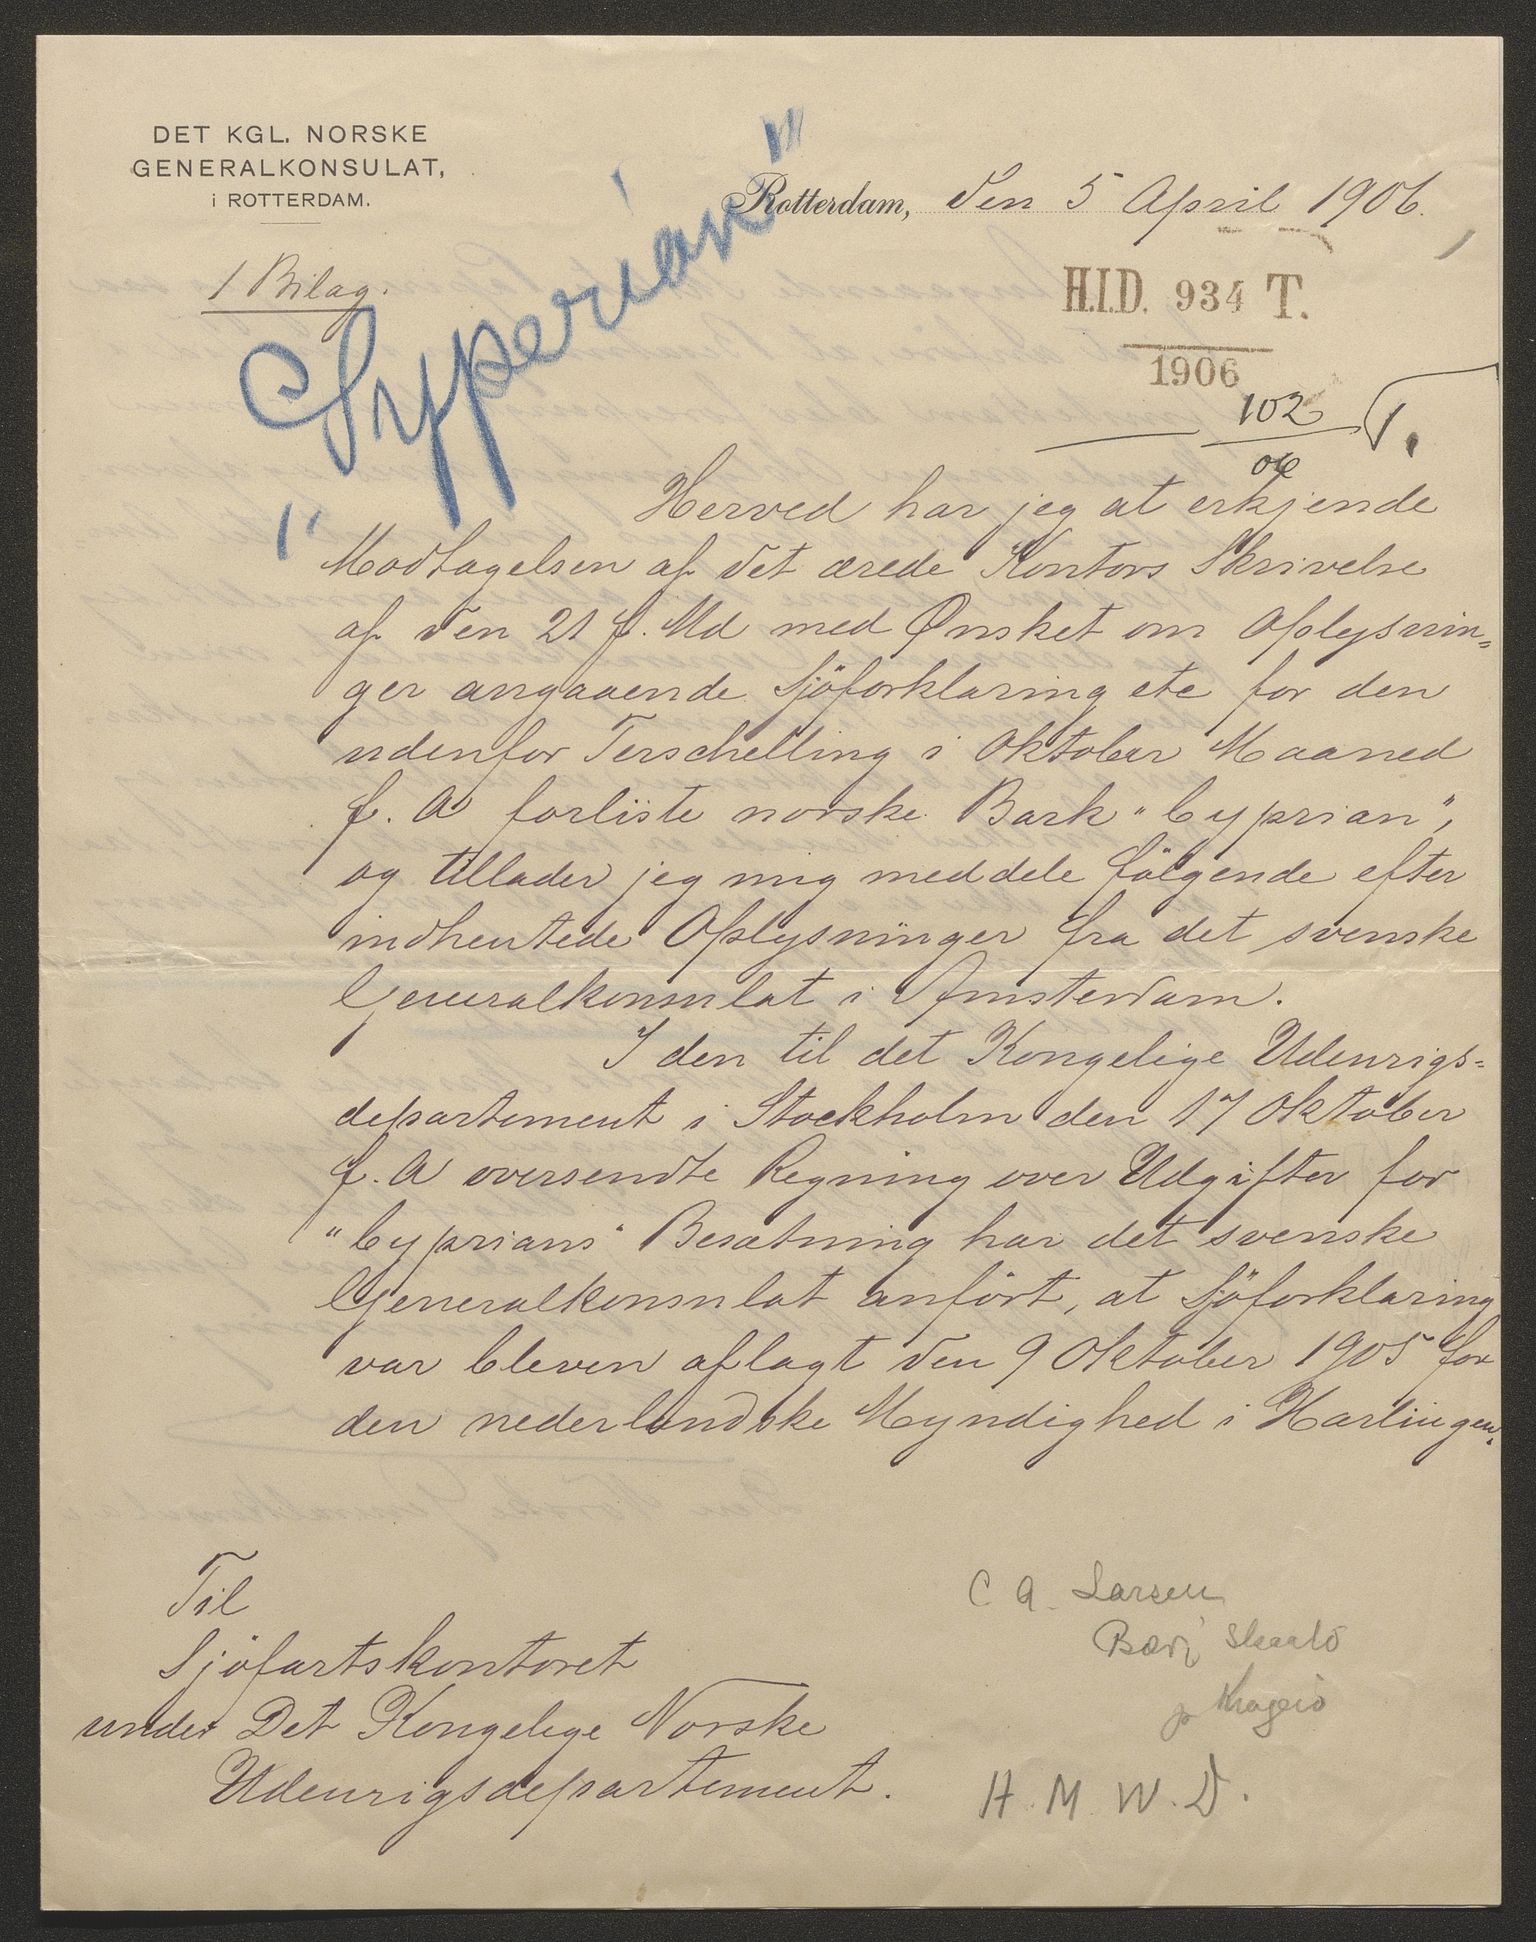 DET KGL. NORSKE
GENERALKONSULAT,
i ROTTERDAM.
Rotterdam, den 5 April 1906.
1 Bilag.
"Cyperian"
H.I.D. 934 T.
1906
102
06
Herved har jeg at erkjende
Modtagelsen af det ærede Kontors Skrivelse
af den 21 f. Md med Ønsket om Oplysnin=
ger angaaende Sjöforklaring etc for den
udenfor Terschelling i Oktober Maaned
f. A forliste norske Bark "Cyprian",
og tillader jeg mig meddele følgende efter
indhentede Oplysninger fra det svenske
Generalkonsulat i Amsterdam.
I den til det Kongelige Udenrigs=
departement i Stockholm den 17 Oktober
f. A oversendte Regning over Udgifter for
"Cyprians" Besætning har det svenske
Generalkonsulat anført, at Sjöforklaring
var bleven aflagt den 9 Oktober 1905 for
den nederlandske Myndighed i Harlingen.
Til
Sjöfartskontoret
under Det Kongelige Norske
Udenrigsdepartement.
C A Larsen
H. M. W. D.